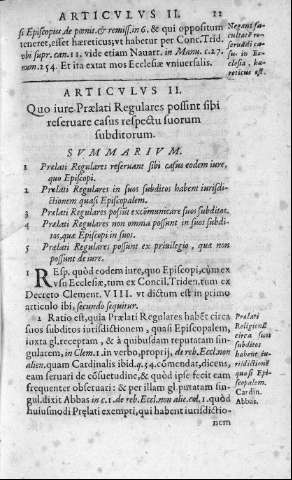 ARTICVLVS II. 11
si Episcopus, de pœnit. & remiss. in 6. & qui oppositum
teneret, esset hæreticus, vt habetur per Conc. Trid.
vbi supr. can. 11. vide etiam Nauarr. in Manu. c. 27.
num. 254. Et ita extat mos Ecclesiæ vniuersalis.
Negans facultatē
reseruādi casus
in Ecclesia,
hæreticus est.
ARTICVLVS II.
Quo iure Prælati Regulares possint sibi
reseruare casus respectu suorum
subditorum.
SVMMARIVM.
1 Prælati Regulares reseruant sibi casus eodem iure,
quo Episcopi.
2 Prælati Regulares in suos subditos habent iurisdictionem
quasi Episcopalem.
3 Prælati Regulares possūt excōmunicare suos subditos.
4 Prælati Regulares non omnia possunt in suos subditos,
quæ Episcopi in suos.
5 Prælati Regulares possunt ex priuilegio, quæ non
possunt de iure.
1 RESp. quòd eodem iure, quo Episcopi, cùm ex
vsu Ecclesiæ, tum ex Concil. Triden. tum ex
Decreto Clement. VIII. vt dictum est in primo
articulo ibi, secundo sequitur.
2 Ratio est, quia Prælati Regulares habēt circa
suos subditos iurisdictionem, quasi Episcopalem,
iuxta gl. receptam, & à quibusdam reputatam singularem,
in Clem. 1. in verbo, proprij, de reb. Eccl. non
alien. quam Cardinalis ibid. q. 54. cōmendat, dicens,
eam seruari de cōsuetudine, & quòd ipse fecit eam
frequenter obseruari: & per illam gl. putatam singul.
dixit Abbas in c. 1. de reb. Eccl. non alie. col. 1. quòd
huiusmodi Prælati exempti, qui habent iurisdictionem
Prælati
Religionū
circa suos
subditos
habent iurisdictionē
quasi Episcopalem.
Cardin.
Abbas.